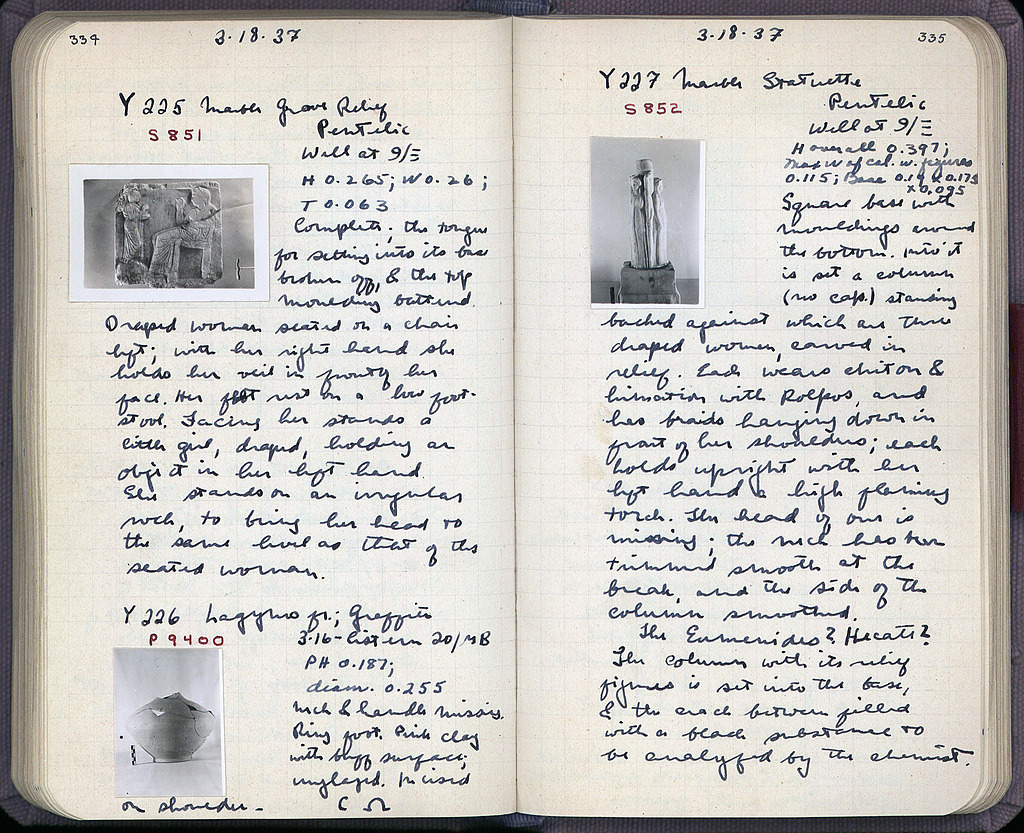 334
3·18·37
Y 225 Marble Grave Relief
S 851
Pentelic
Well at 9/Ξ
H 0.265; W 0.26;
T 0.063
Complete; the tongue
for setting into its base
broken off, & the top
moulding battered.
Draped woman seated on a chair
left; with her right hand she
holds her veil in front of her
face. Her feet rest on a low foot-
stool. Facing her stands a
little girl, draped, holding an
object in her left hand.
She stands on an irregular
rock, to bring her head to
the same level as that of the
seated woman.
Y 226 Lagynos fr.; Graffito
P 9400
3·16 - Cistern 20/ΛB
PH 0.187;
diam. 0.255
Neck & handle missing.
Ring foot. Pink clay
with buff surface;
unglazed. Incised
on shoulder - C Ω
335
3·18·37
Y 227 Marble Statuette
S 852
Pentelic
Well at 9/Ξ
H overall 0.397;
Max W of col. w. figures
0.115; Base 0.19 x 0.175
x 0.095
Square base with
mouldings around
the bottom. Into it
is set a column
(no cap.) standing
backed against which are three
draped women, carved in
relief. Each wears chiton &
himation with kolpos, and
has braids hanging down in
front of her shoulders; each
holds upright with her
left hand a high flaming
torch. The head of one is
missing; the neck has been
trimmed smooth at the
break, and the side of the
column smoothed.
The Eumenides? Hecate?
The column with its relief
figures is set into the base,
& the crack between filled
with a black substance to
be analyzed by the chemist.